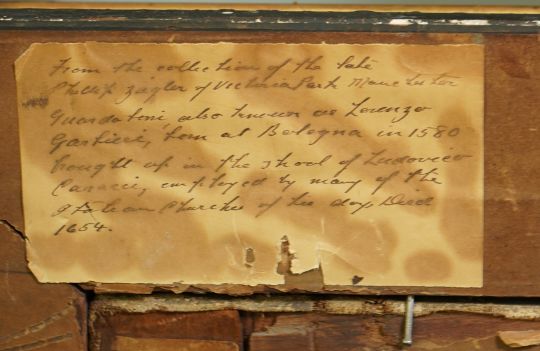 From the collection of the late
Phillip Zeigler of Victoria Park Manchester
Guardolini also known as Lorenzo
Garbieri, born at Bologna in 1580
brought up in the school of Ludovico
Caracci, employed by many of the
Italian Churches of his day, Died
1654.